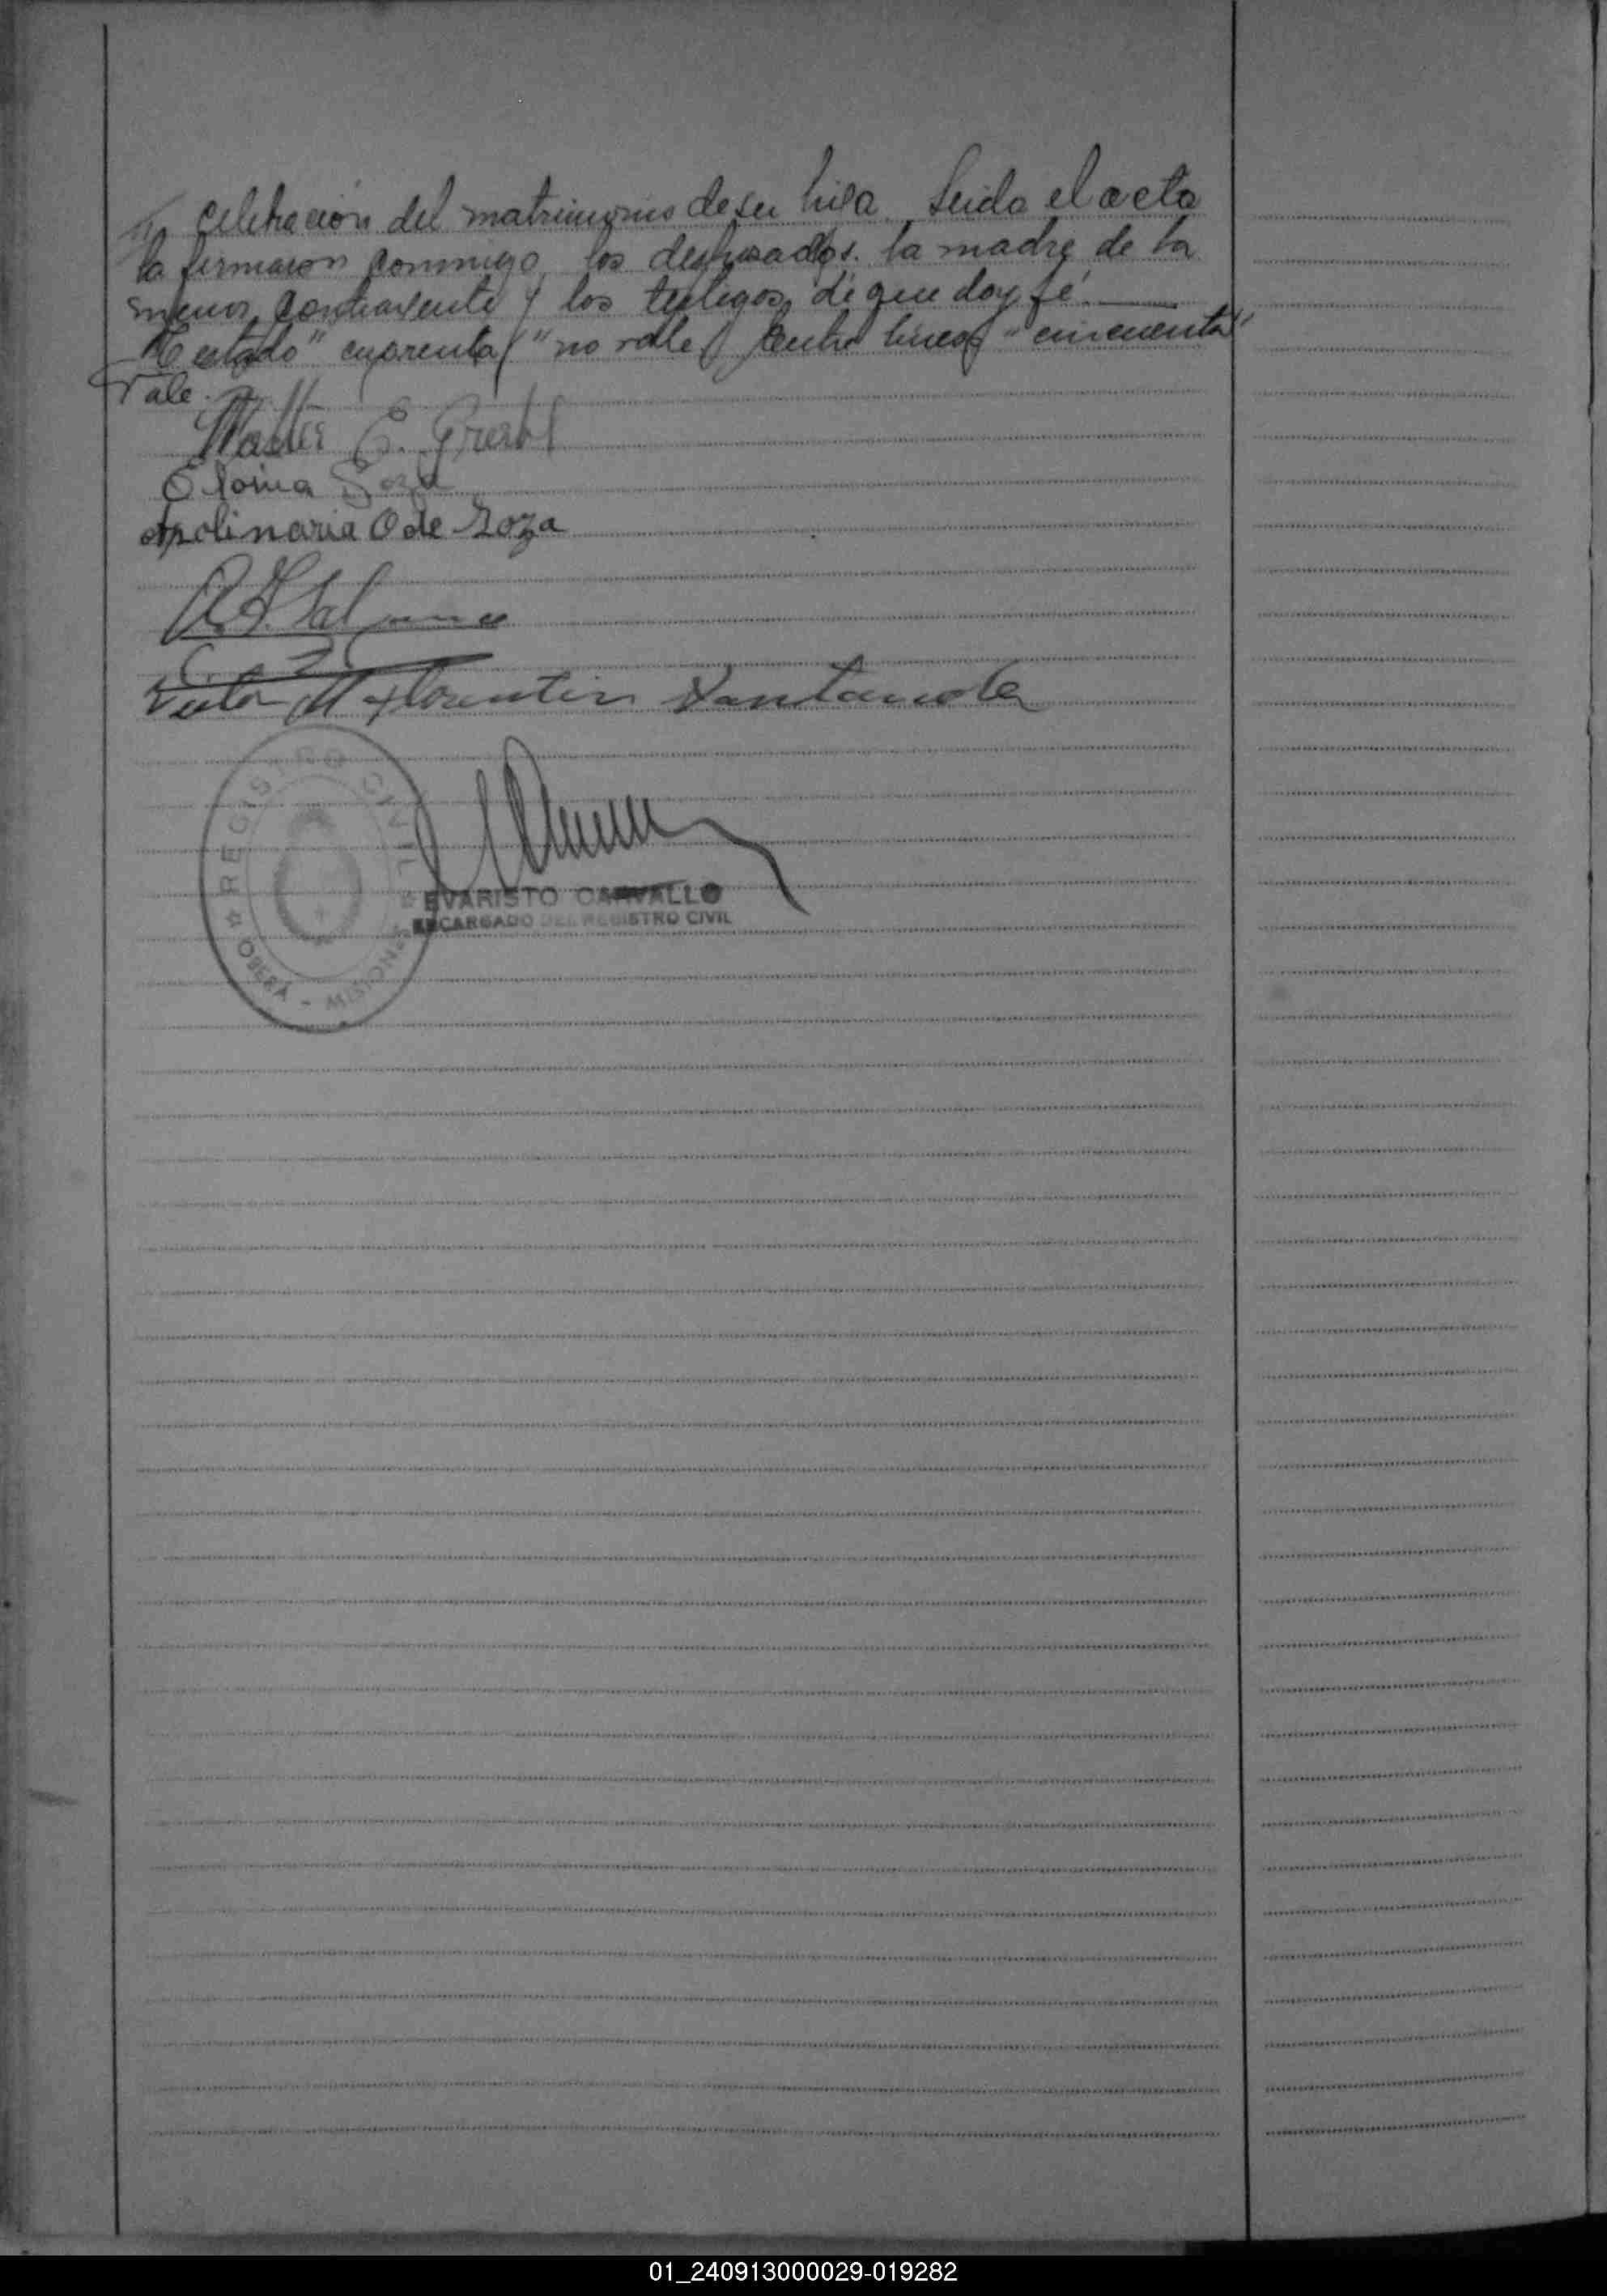 celebración del matrimonio de su hija. Leida el acta
la firmaron conmigo, los desposados. la madre de la
menor contrayente y los testigos, de que doy fé.
Testado "cuarenta" "no vale" entre lineas "cincuenta"
Vale.
Walter E.
Eloina Soza
Apolinaria O de Soza
Victor M Florentin Santander
REGISTRO CIVIL
OBERA - MISIONES
EVARISTO CARVALLO
ENCARGADO DEL REGISTRO CIVIL
01_240913000029-019282